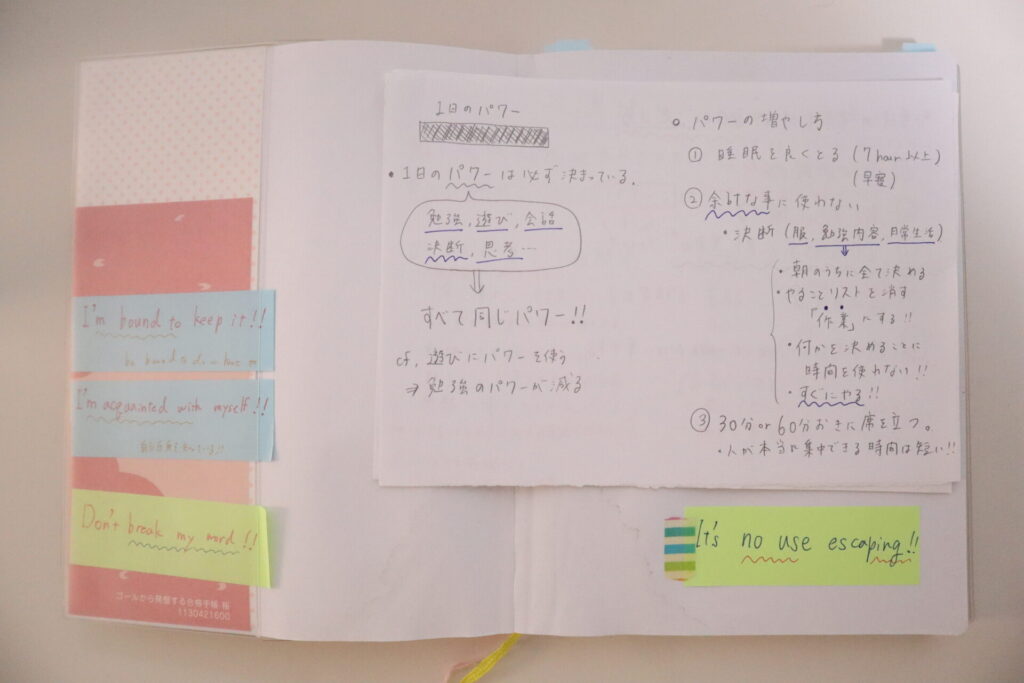 I'm bound to keep it!!
be bound to do
I'm acquainted with myself!!
自分自身を知っている!!
Don't break my word!!
ゴールから発想する合格手帳 桜
1130421600
1日のパワー
・1日のパワーは必ず決まっている。
勉強, 遊び, 会話
決断, 思考…
すべて同じパワー!!
cf, 遊びにパワーを使う
⇒ 勉強のパワーが減る
○ パワーの増やし方
① 睡眠を良くとる (7hour以上)
(早寝)
② 余計な事に使わない
・決断 (服, 勉強内容, 日常生活)
・朝のうちに全て決める
・やることリストを消す
「作業」にする!!
・何かを決めることに
時間を使わない!!
・すぐにやる!!
③ 30分or60分おきに席を立つ。
・人が本当に集中できる時間は短い!!
It's no use escaping!!